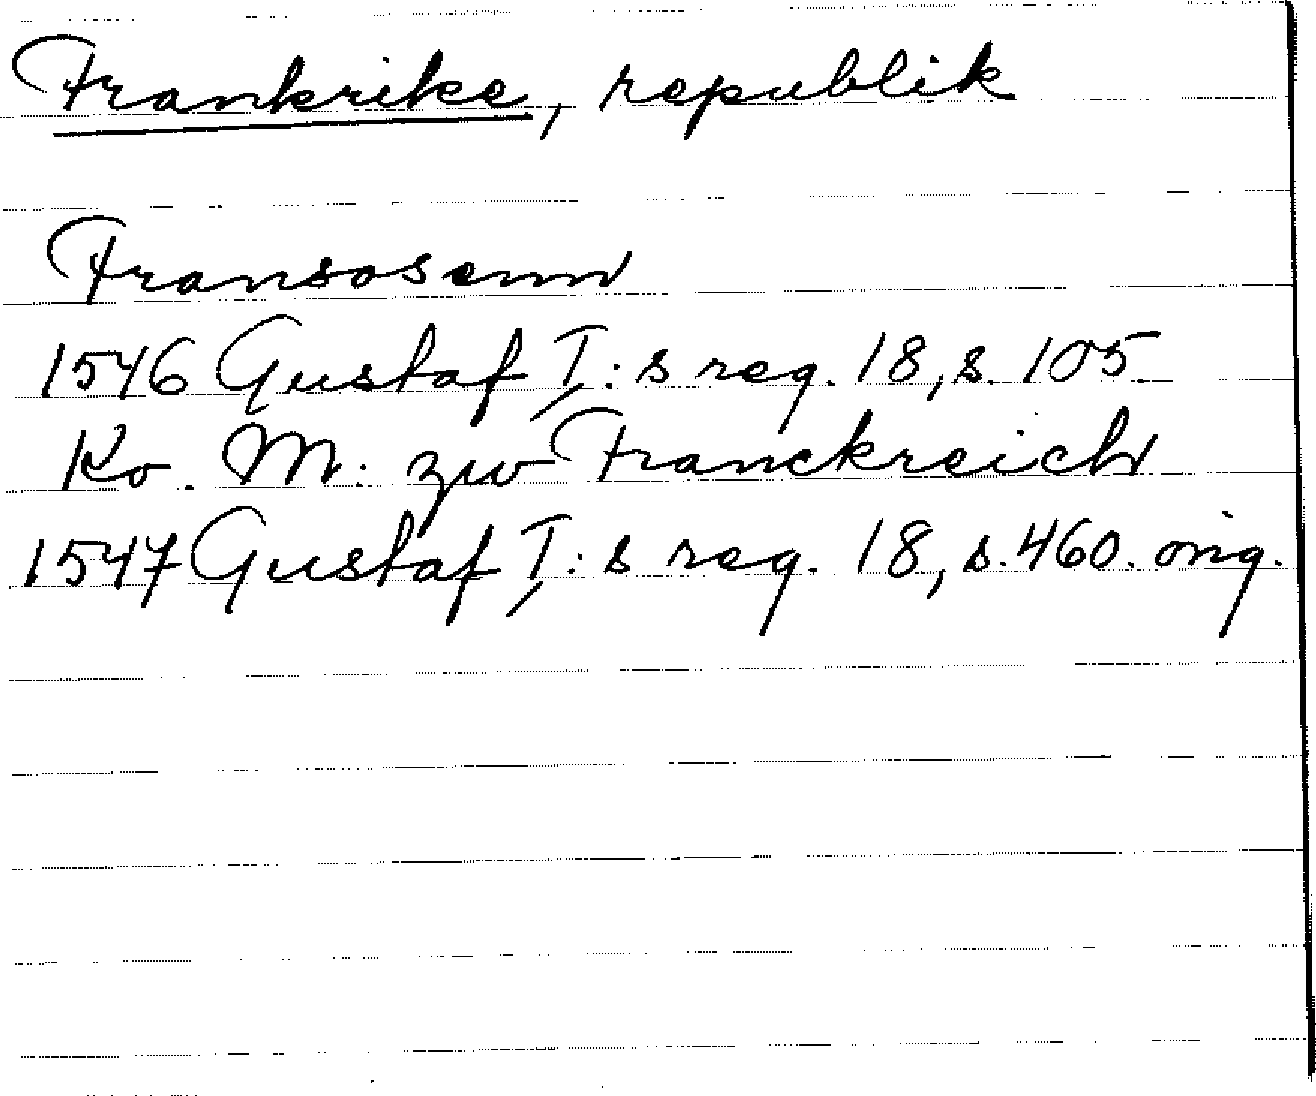 Frankrike, republik
Fransosenn
1546 Gustaf I:s reg. 18, s. 105
Ko. M: zw Franckreich
1547 Gustaf I:s reg. 18, s. 460. orig.